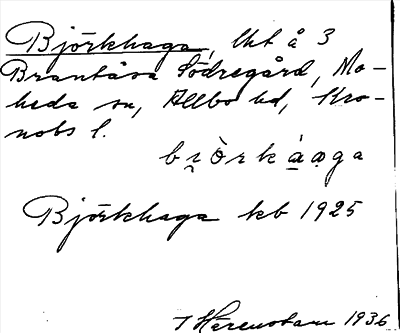 Björkhaga, lht å 3
Brantåsa Södregård, Mo-
heda sn, Allbo hd, Kro-
nobs l.
bi̯òrká̱a̤ga
Björkhaga kb 1925
T Härenstam 1936